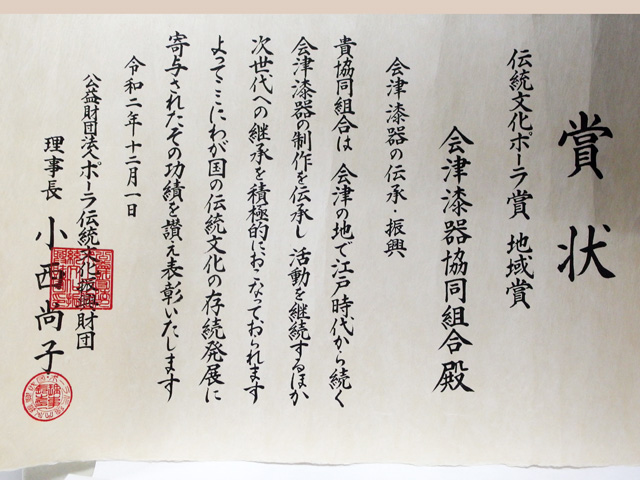 賞状
伝統文化ポーラ賞 地域賞
会津漆器協同組合殿
会津漆器の伝承・振興
貴協同組合は 会津の地で江戸時代から続く
会津漆器の制作を伝承し 活動を継続するほか
次世代への継承を積極的におこなっておられます
よってここにわが国の伝統文化の存続発展に
寄与されたその功績を讃え表彰いたします
令和二年十二月一日
公益財団法人ポーラ伝統文化振興財団
理事長 小西尚子